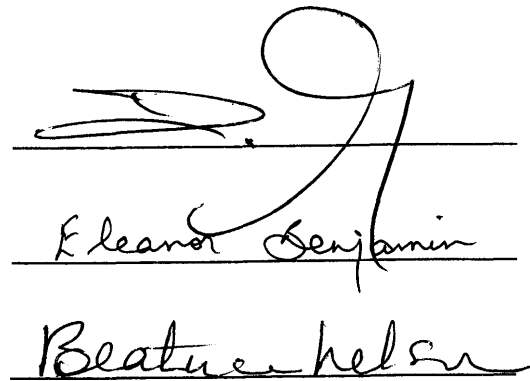 Eleanor Benjamin
Beatrice Nelson